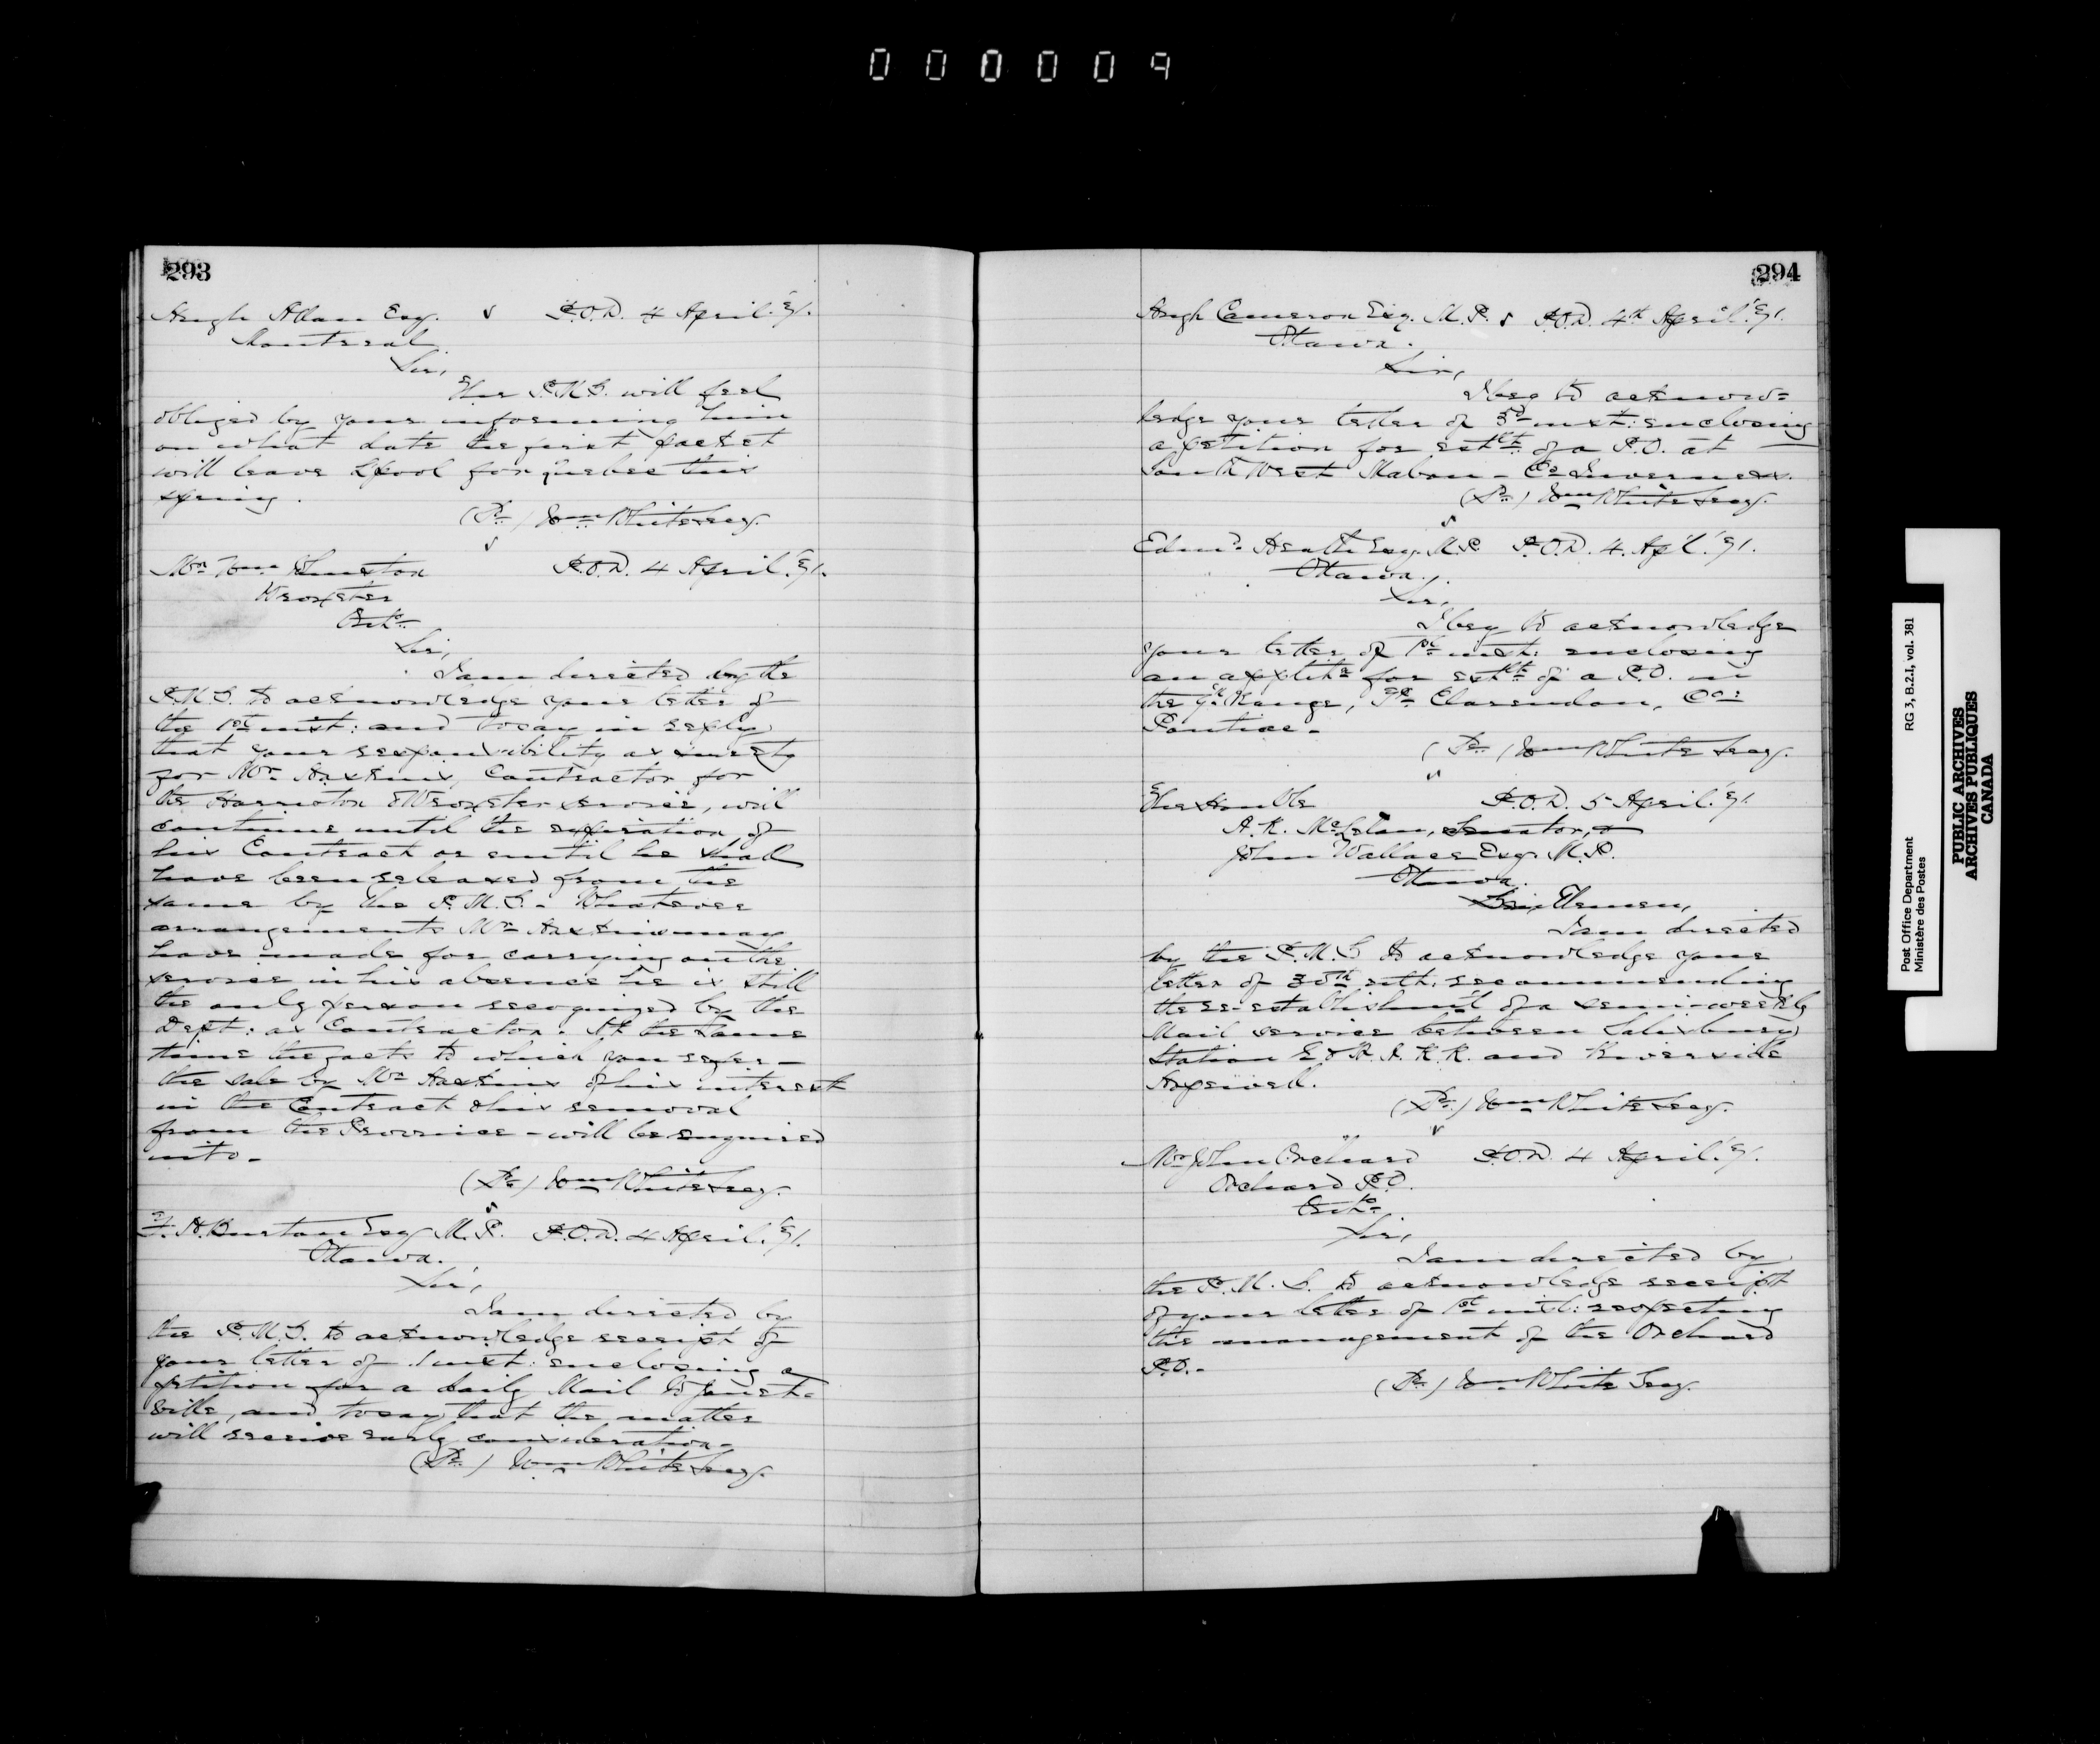 000009
293
Hugh Allan Esq. P.O.D. 4 April '71.
Montreal
Sir,
The P.M.G. will feel
obliged by your informing him
on what date the first packet
will leave Lpool for Quebec this
spring.
(Sd.) Wm White Secy.
Mr Wm Johnston P.O.D. 4 April '71.
Wroxeter
Onto.
Sir,
I am directed by the
P.M.G. to acknowledge your letter of
the 1st inst: and to say in reply
that your responsibility as surety
for Mr Haskins, Contractor for
the Harriston & Wroxeter service, will
continue until the expiration of
his Contract or until he shall
have been released from the
same by the P.M.G. - Whatever
arrangements Mr Haskins may
have made for carrying on the
service in his absence he is still
the only person recognized by the
Dept: as Contractor. At the same
time the facts to which you refer -
the sale by Mr Haskins of his interest
in the Contract & his removal
from the Province - will be enquired
into -
(Sd.) Wm White Secy.
F. H. Burton Esq M.P. P.O.D. 4 April '71.
Ottawa.
Sir,
I am directed by
the P.M.G. to acknowledge receipt of
your letter of 1 inst: enclosing a
petition for a daily Mail to Janet-
ville, and to say that the matter
will receive early consideration -
(Sd.) Wm White Secy.
294
Hugh Cameron Esq. M.P. P.O.D. 4th April '71.
Ottawa.
Sir,
I beg to acknow-
ledge your letter of 3d inst: enclosing
a petition for estt of a P.O. at
South West Mabou - Co Inverness.
(Sd.) Wm White Secy.
Edmd. Heath Esq. M.P. P.O.D. 4. Apl. '71.
Ottawa.
Sir,
I beg to acknowledge
your letter of 1st inst: enclosing
an applitn for estt of a P.O. in
the 7th Range, Tp Clarendon, Co:
Pontiac -
(Sd.) Wm White Secy.
The Honble P.O.D. 5 April '71.
A. R. McLelan, Senator, &
John Wallace Esq. M.P.
Ottawa.
Gentlemen,
I am directed
by the P.M.G to acknowledge your
letter of 30th ult: recommending
the re-establishmt of a semi-weekly
Mail service between Salisbury
Station E. & N. A. R. R. and Riverside
Hopewell.
(Sd.) Wm White Secy.
Mr John Orchard P.O.D. 4 April '71.
Orchard P.O.
Onto.
Sir,
I am directed by
the P.M.G. to acknowledge receipt
of your letter of 1st inst: respecting
the management of the Orchard
P.O. -
(Sd.) Wm White Secy.
Post Office Department RG 3, B.2.I, vol. 381
Ministère des Postes
PUBLIC ARCHIVES
ARCHIVES PUBLIQUES
CANADA